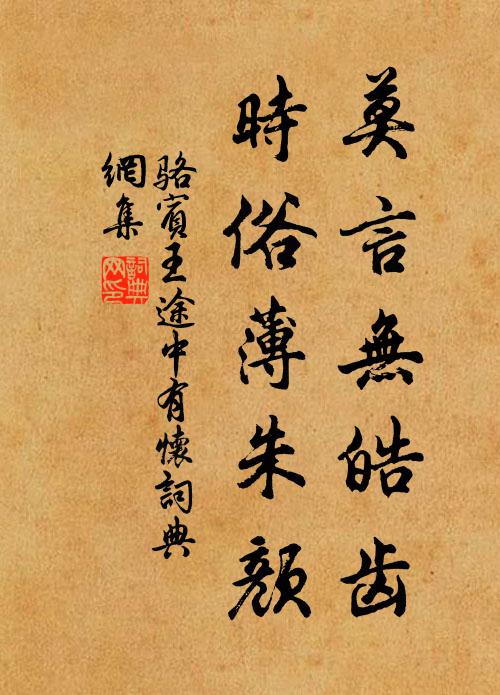 莫言無皓齿
時俗薄朱顏
駱賓王途中有懷詞典
網集
詞典
网印